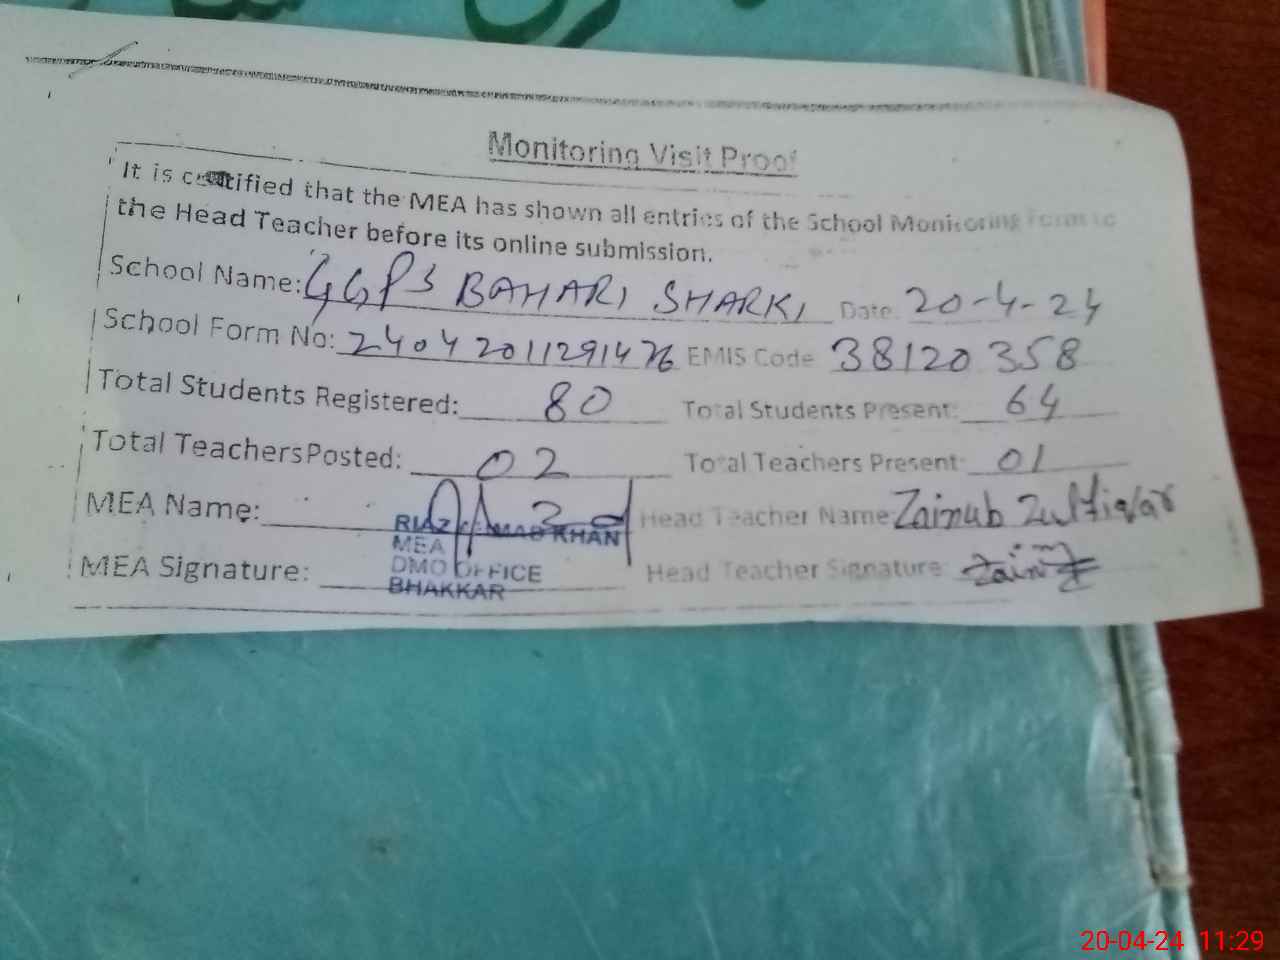 Monitoring Visit Proof
It is certified that the MEA has shown all entries of the School Monitoring Form to
the Head Teacher before its online submission.
School Name: GGPS BAHARI SHARKI Date: 20-4-24
School Form No: 24042011291476 EMIS Code 38120358
Total Students Registered: 80 Total Students Present: 64
Total Teachers Posted: 02 Total Teachers Present: 01
MEA Name: Head Teacher Name: Zainub Zulfiqar
RIAZ AHMAD KHAN
MEA
MEA Signature: DMO OFFICE Head Teacher Signature:
BHAKKAR
20-04-24 11:29